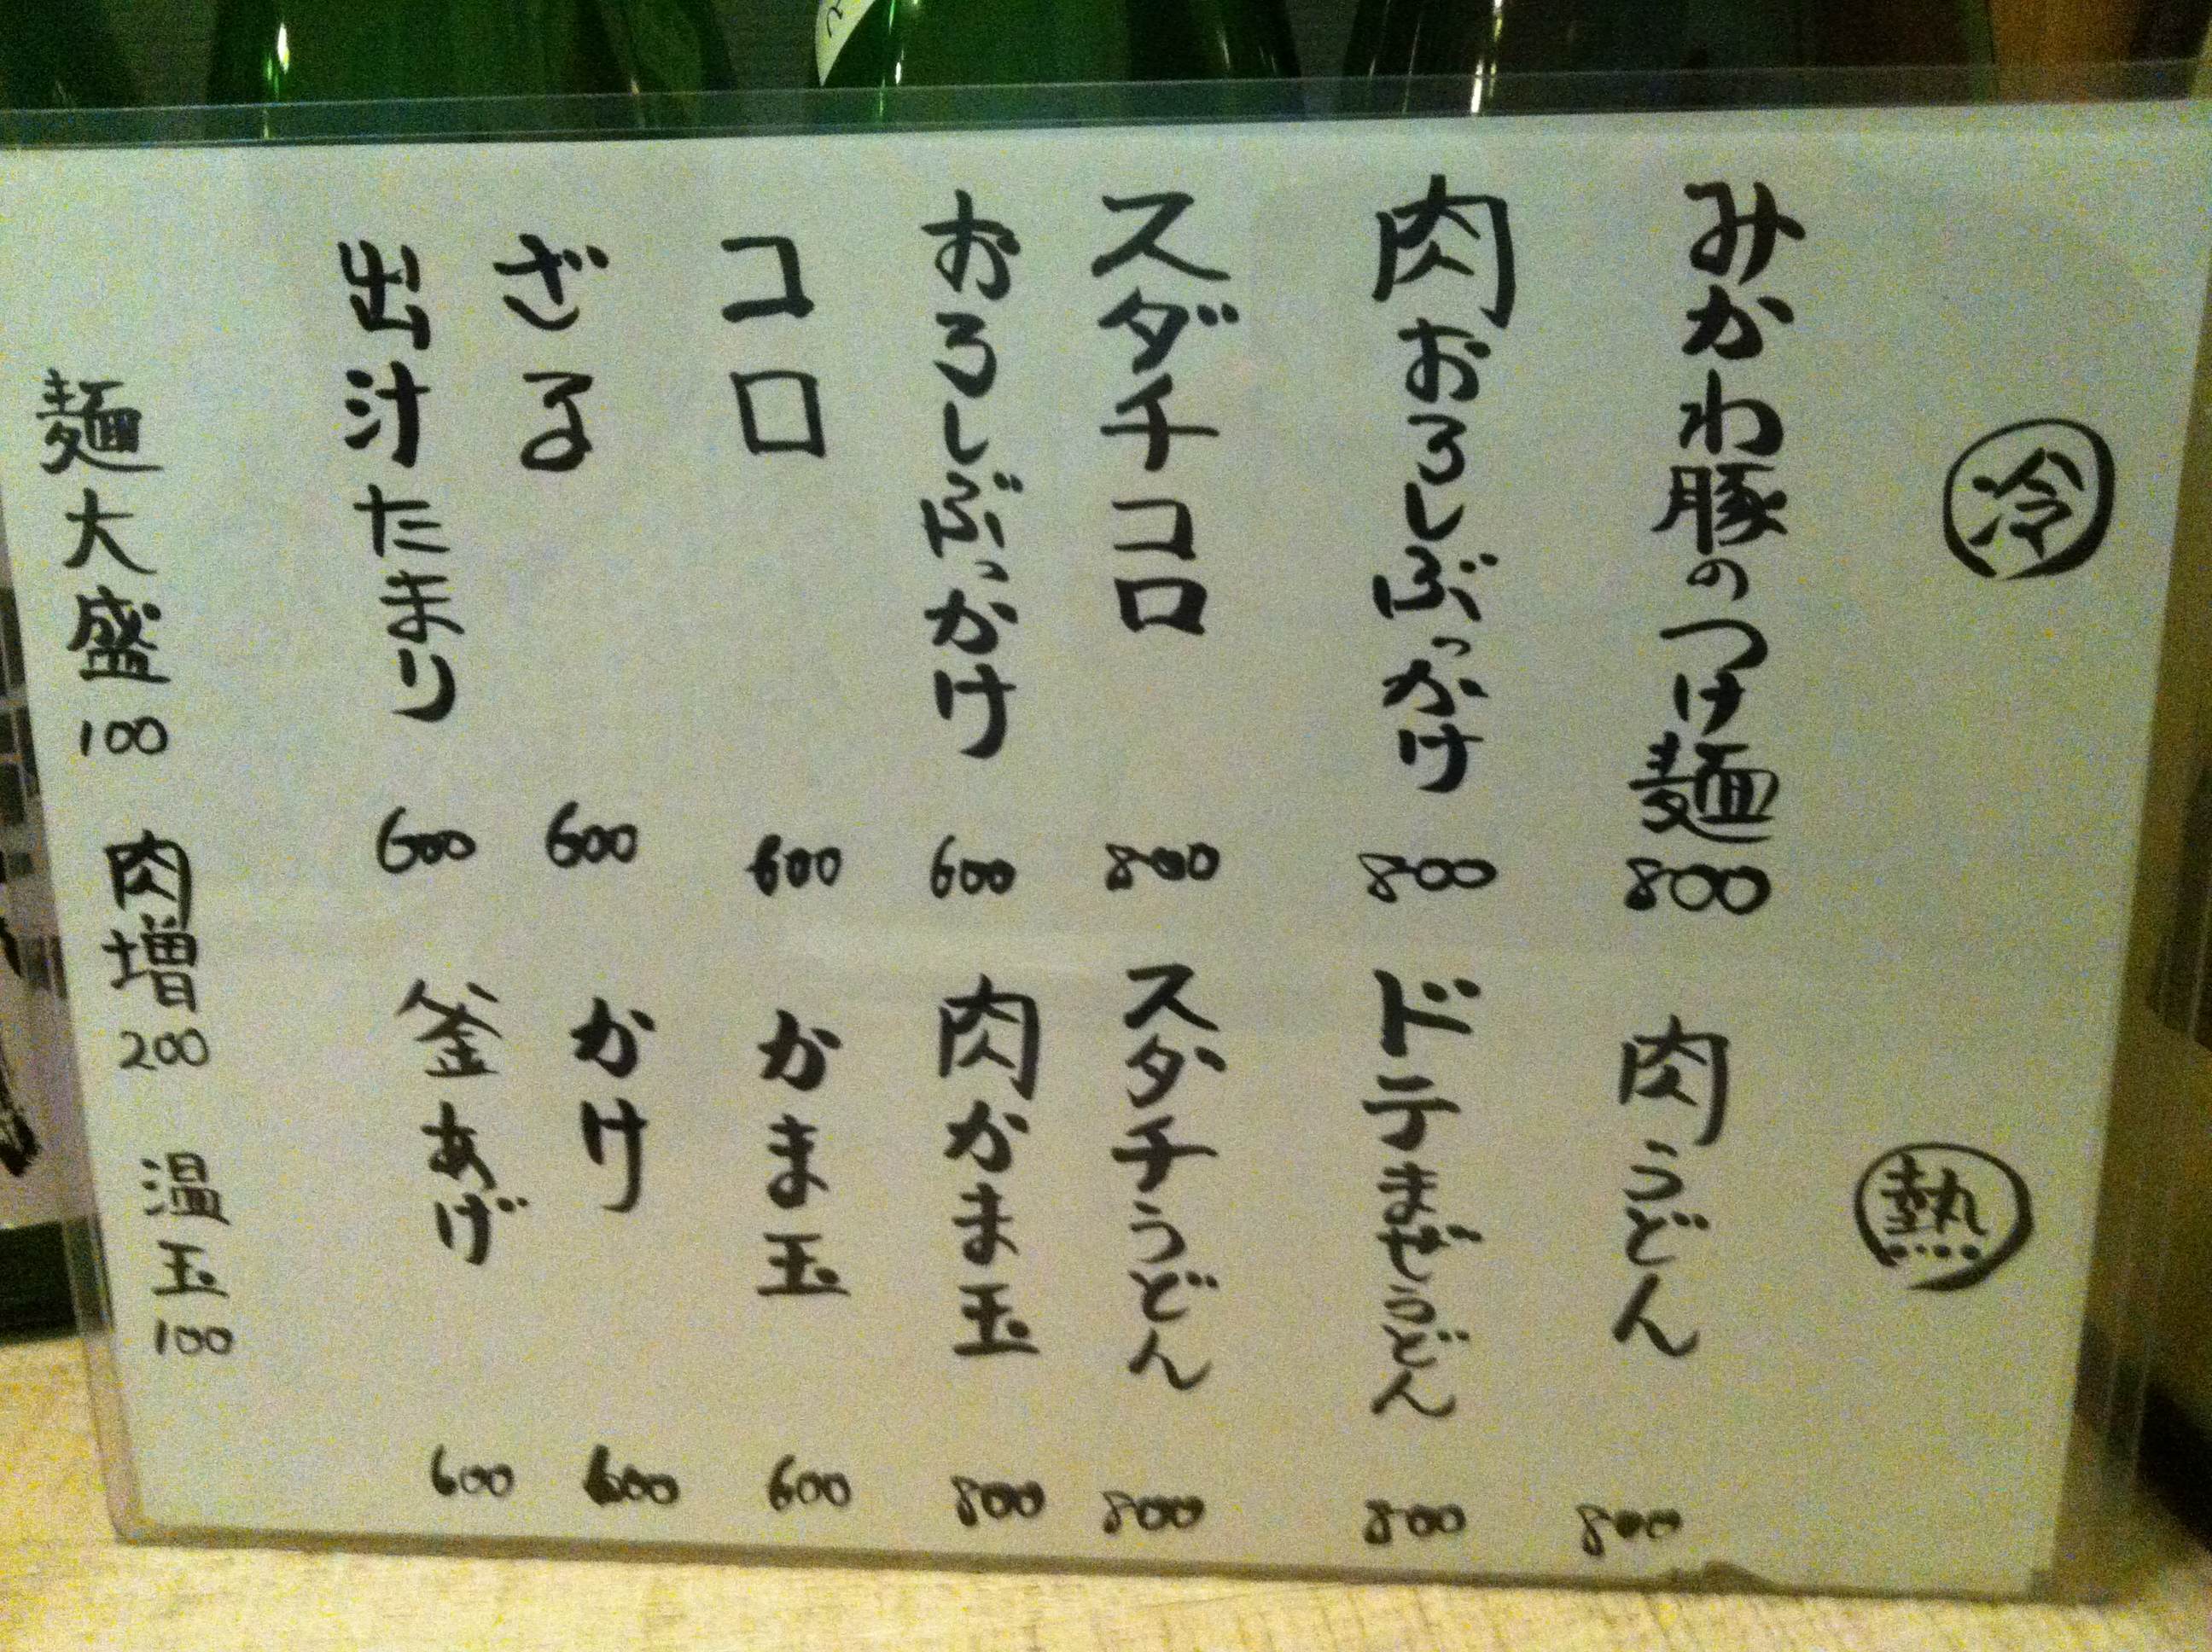 冷
みかわ豚のつけ麺 800
肉おろしぶっかけ 800
スダチコロ 800
おろしぶっかけ 600
コロ 600
ざる 600
出汁たまり 600
熱
肉うどん 800
ドテまぜうどん 800
スダチうどん 800
肉かま玉 800
かま玉 600
かけ 600
釜あげ 600
麺大盛100 肉増200 温玉100